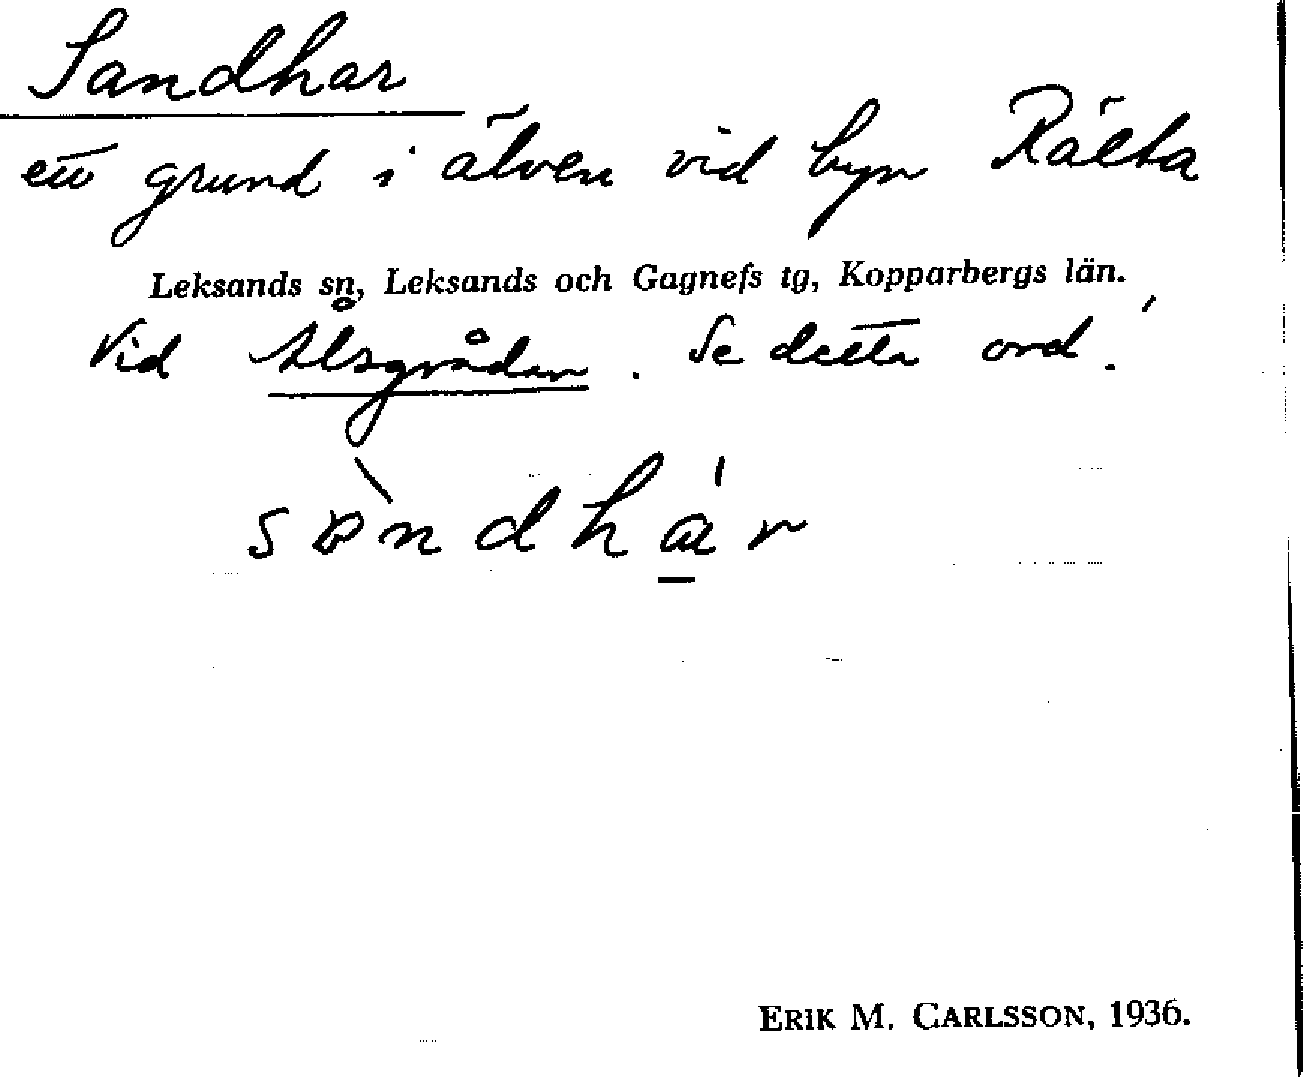 Sandhar
ett grund i älven vid byn Rälta
Leksands sn, Leksands och Gagnefs tg, Kopparbergs län.
Vid Ålsgrådan. Se detta ord!
ERIK M. CARLSSON, 1936.